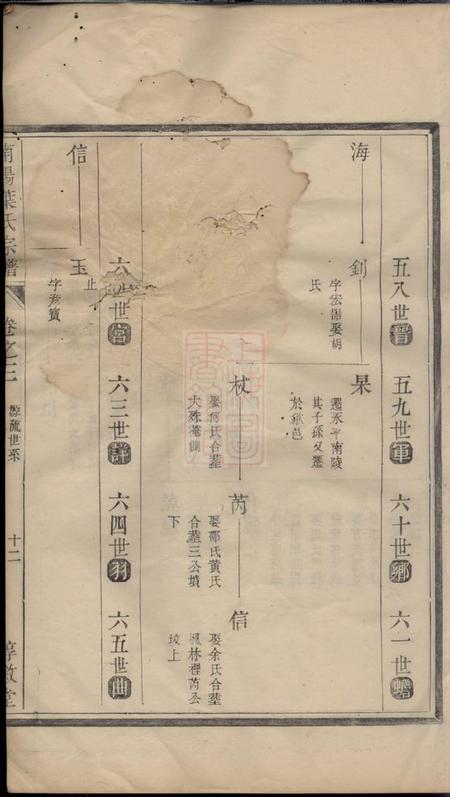 五八世晉
五九世軍
六十世鄉
六一世蟾
海
釗
字宏淵娶胡
氏
杲
遷永平南陵
其子孫又遷
於歙邑
杖
娶何氏合塟
大殊菴側
芮
娶鄒氏黃氏
合塟三公墳
下
信
娶余氏合塟
鳳林裡芮公
墳上
上海圖書館藏
六二世宮
六三世詳
六四世羽
六五世曲
信
玉
字彥寳
止
南陽葉氏宗譜
卷之三
源流世系
十二
惇敘堂